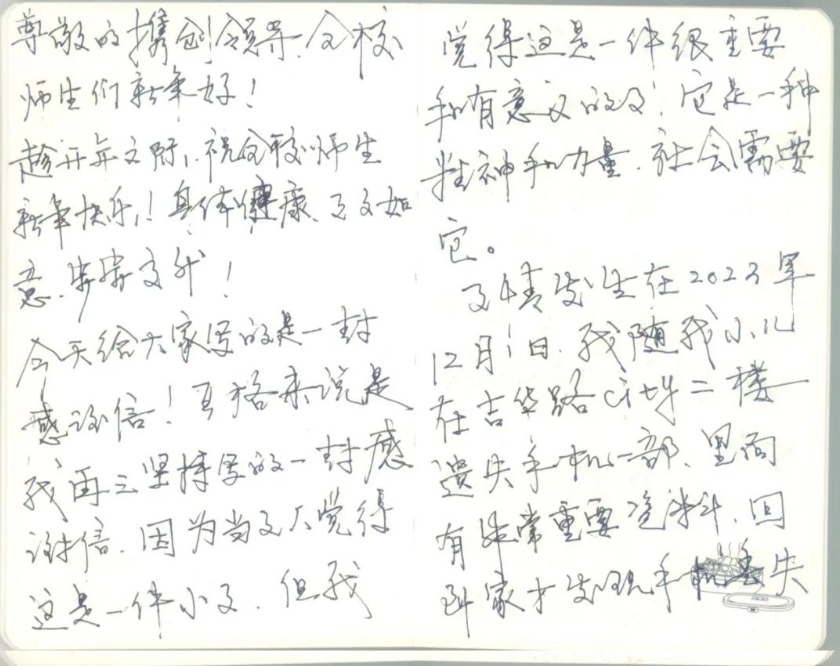 尊敬的携创领导、全校
师生们新年好！
趁开年之际，祝全校师生
新年快乐！身体健康、万事如
意、步步高升！
今天给大家写的是一封
感谢信！严格来说是
我再三坚持写的一封感
谢信，因为当事人觉得
这是一件小事，但我
觉得这是一件很重要
和有意义的事，它是一种
精神和力量，社会需要
它。
事情发生在2023年
12月1日，我随我小儿
在吉华路city二楼
遗失手机一部，里面
有非常重要资料，回
到家才发现手机丢失